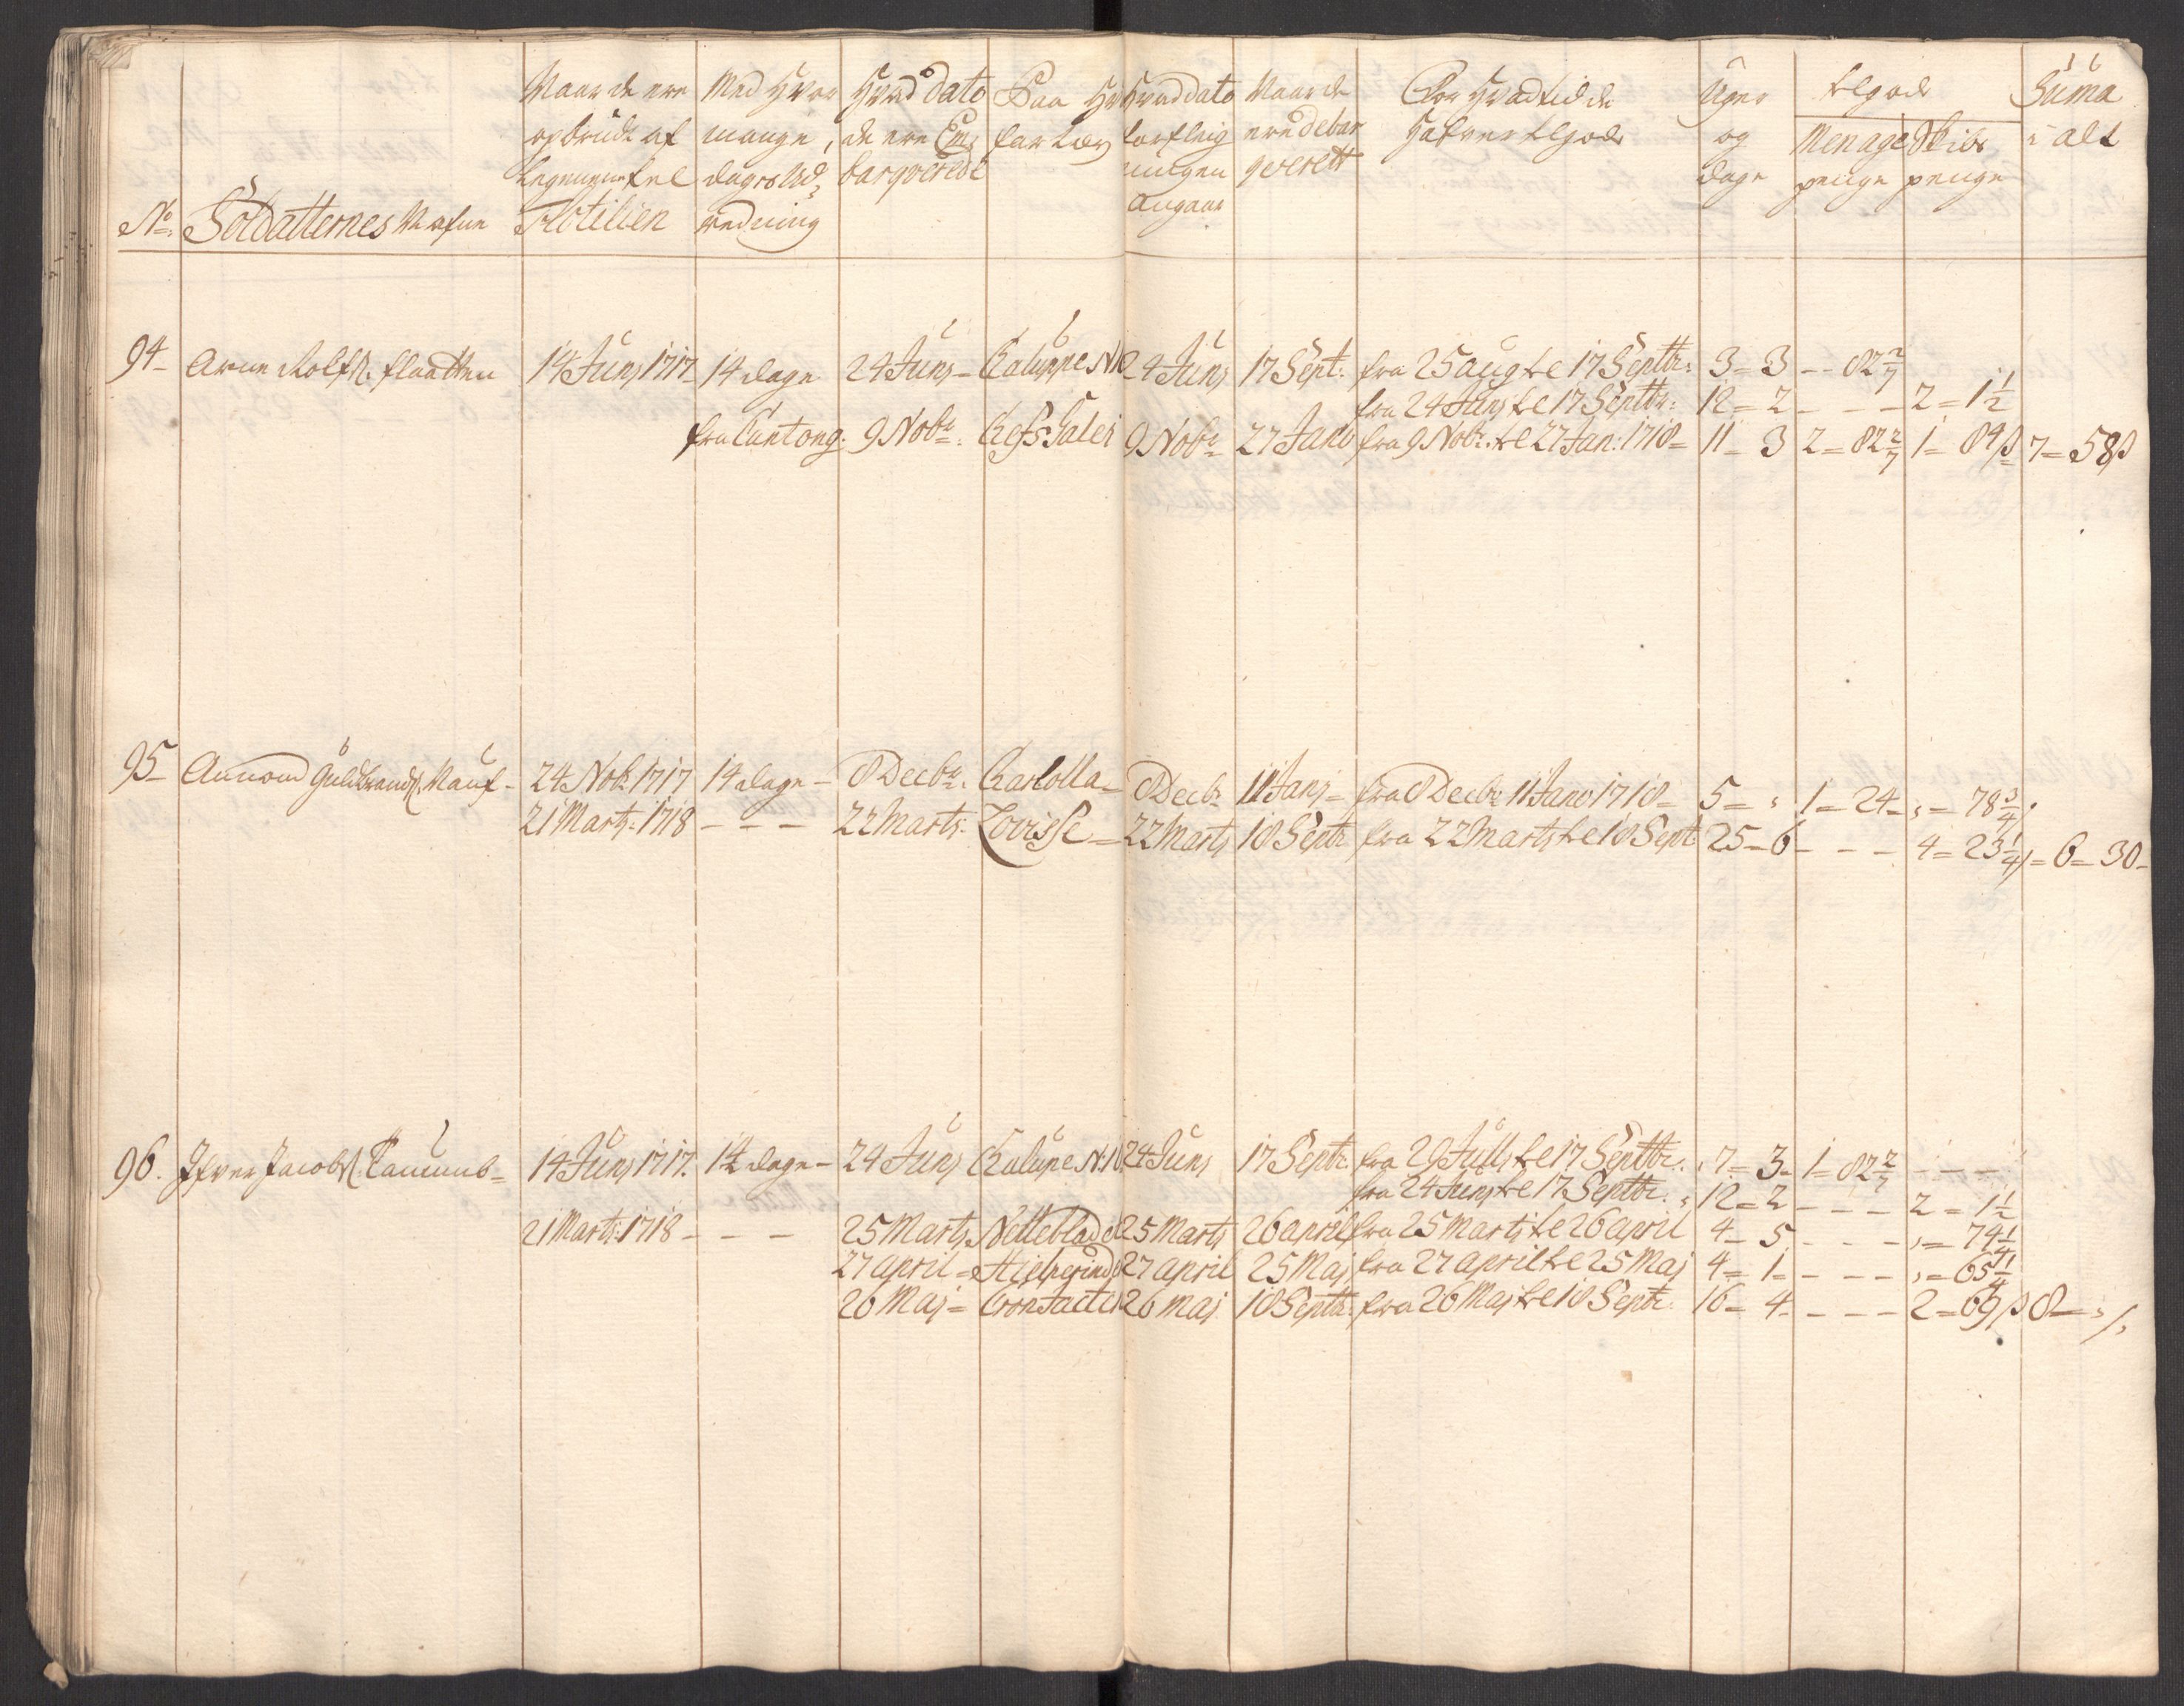 Naar de ere opbrüdt af Legemenne til Flotilien
Med Hvor mange dages Udredning
Hvad dato de ere Embarqverede
Paa Hv fartøy
Hvad dato forfleigningen Angaar
Naar de ere debarqverett
For Hvad tid de Hafver tilgode
Uger og dage
tilgode
Menage penge
Skibs penge
Suma i alt
No: Soldatternes Nafne
94 Arne Rolfs. flaatten 14 Junj 1717 14 dage 24 Junj Chaluppe N 10 24 Junj 17 Sept: fra 25 aug til 17 Septbr: 3 = 3 - - 82 2/7
fra 24 Junj til 17 Septbr: 12 = 2 - - - 2 = 1 1/2
fra Cantong: 9 Nobr: Chefs Galei 9 Nobr 27 Jano fra 9 Nobr. til 27 Jan: 1718 = 11 = 3 2 = 82 2/7 1 = 84 ß 7 = 58 ß
95 Amond Guldbrands. Nauf - 24 Nobr 1717 14 dage - 8 Decbr. Charlotta = 8 Decbr 11 Janj = fra 8 Decbr 11 Jano 1718 = 5 = , 1 = 24 - , = 78 3/4
21 Marts: 1718 - - - 22 Marts: Lovisse = 22 Marts 18 Septbr fra 22 Marts til 18 Sept: 25 = 6 - - - 4 = 23 1/4 = 6 = 30 -
96. Ifver Jacobs. - 14 Junj 1717. 14 dage - 24 Junj Chalupe N. 10 24 Junj 17 Septbr: fra 29 Julj til 17 Septbr. 7 = 3 - 1 = 82 2/7 - - -
fra 24 Junj til 17 Septbr. 12 = 2 - - - 2 = 1 1/2
21 Marts: 1718 - - - 25 Marts Netteblad 25 Marts 26 april fra 25 Marts til 26 april 4 = 5 - - - , = 74 1/4
27 april = Hielperinde 27 april 25 Maj fra 27 april til 25 Maj 4 = 1 - - - , = 65 1/4
26 Maj = 26 Maj 18 Septbr. fra 26 Maj til 18 Septbr. 16 = 4 - - - 2 = 69 ß 8 = , /,